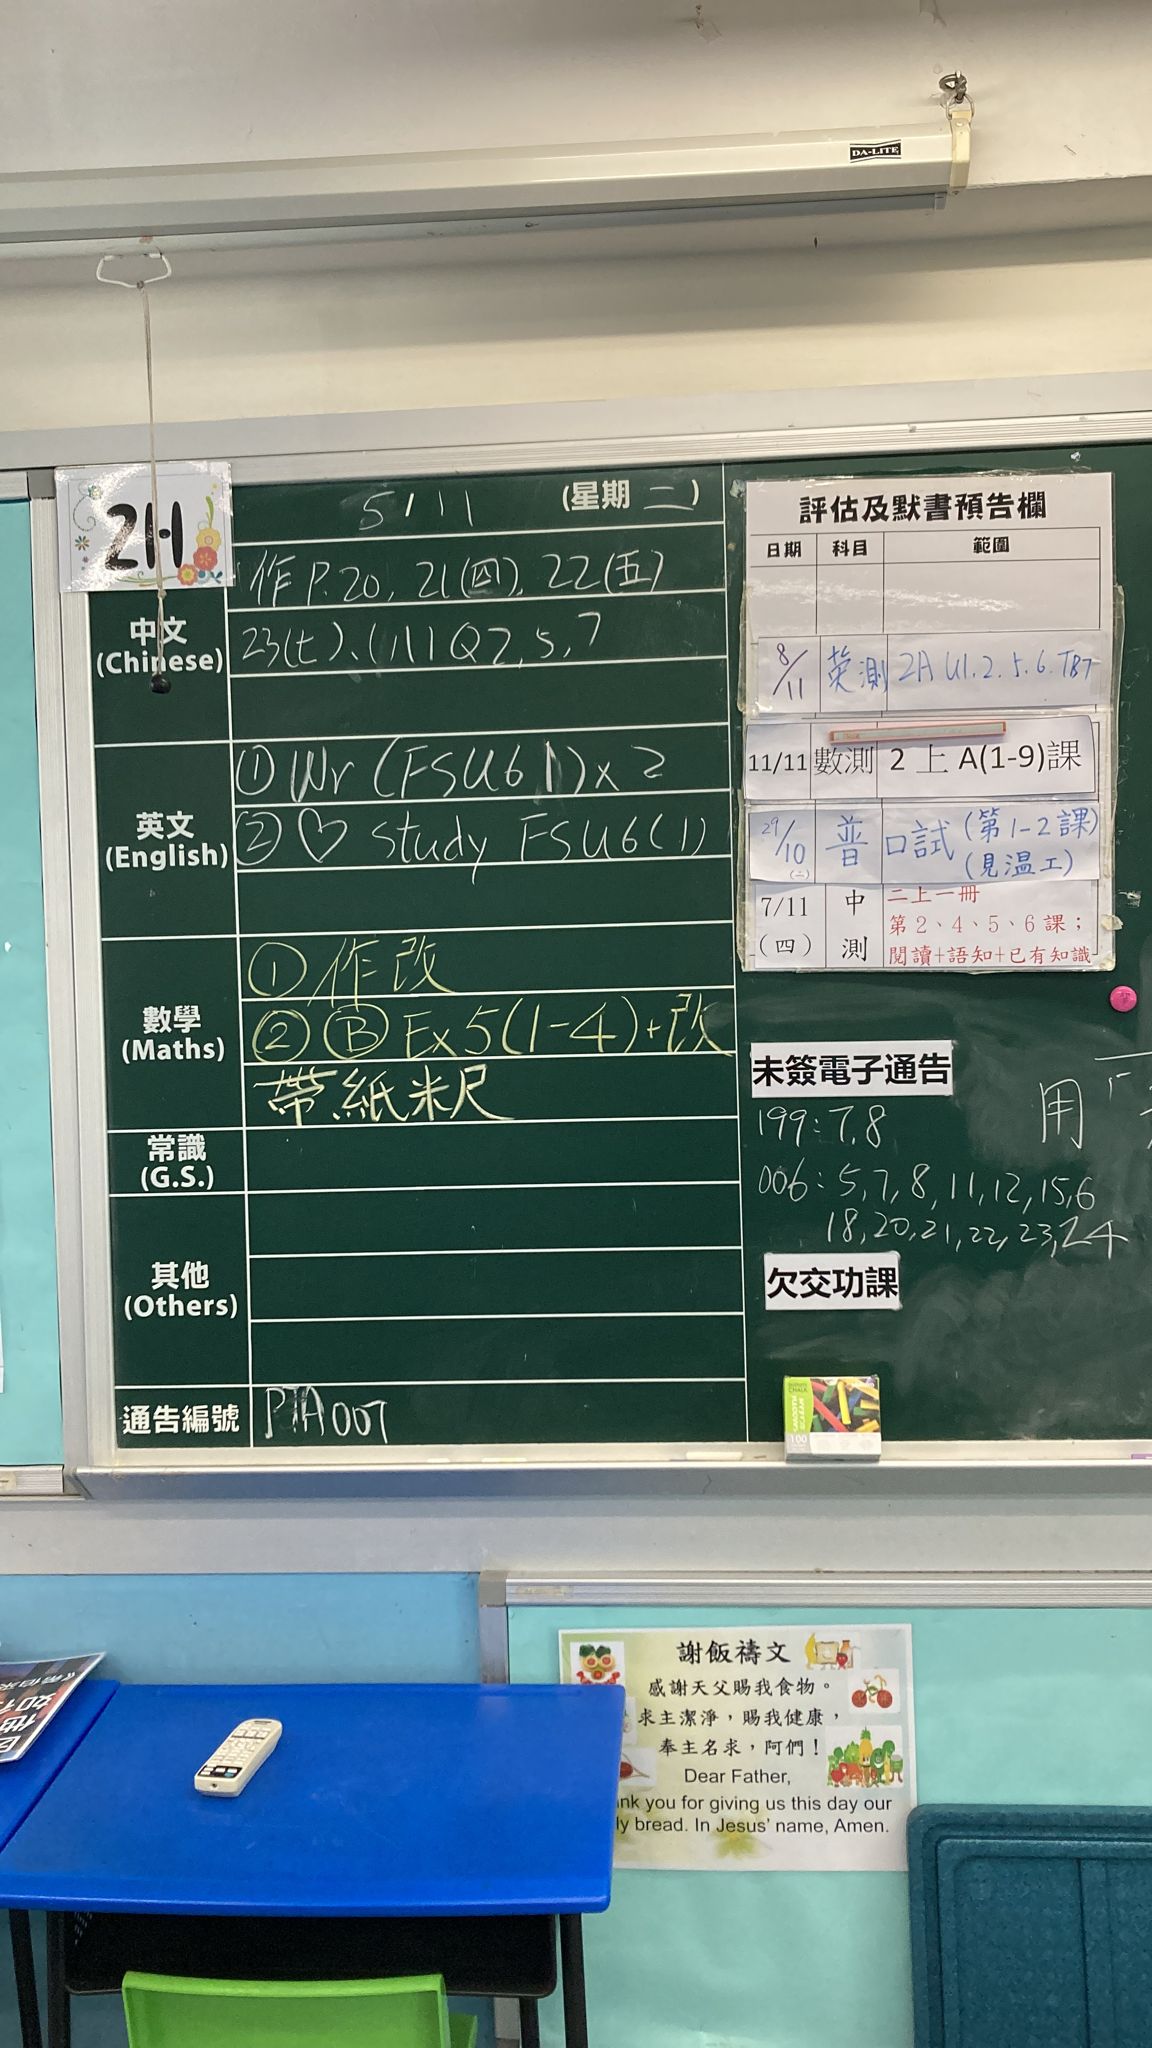 DA-LITE
2H
5/11 (星期 二)
中文
(Chinese)
作 P.20, 21(四), 22(五)
英文
(English)
① Wr (FSU6 1) x 2
② ♡ study FSU6(1)
數學
(Maths)
① 作改
② Ⓑ Ex 5(1-4)+改
帶紙米尺
常識
(G.S.)
其他
(Others)
通告編號
PTA 007
評估及默書預告欄
日期 科目 範圍
8/11 英測 2A U1.2.5.6.TB7
11/11 數測 2 上 A(1-9)課
29/10 (二) 普 口試 (第1-2課)
(見溫工)
7/11 (四) 中測 二上一冊
第 2、4、5、6 課；
閱讀+語知+已有知識
未簽電子通告
199: 7,8
006: 5,7,8,11,12,15,6
18,20,21,22,23,24
欠交功課
用「
100
謝飯禱文
感謝天父賜我食物。
求主潔淨，賜我健康，
奉主名求，阿們！
Dear Father,
nk you for giving us this day our
ly bread. In Jesus' name, Amen.